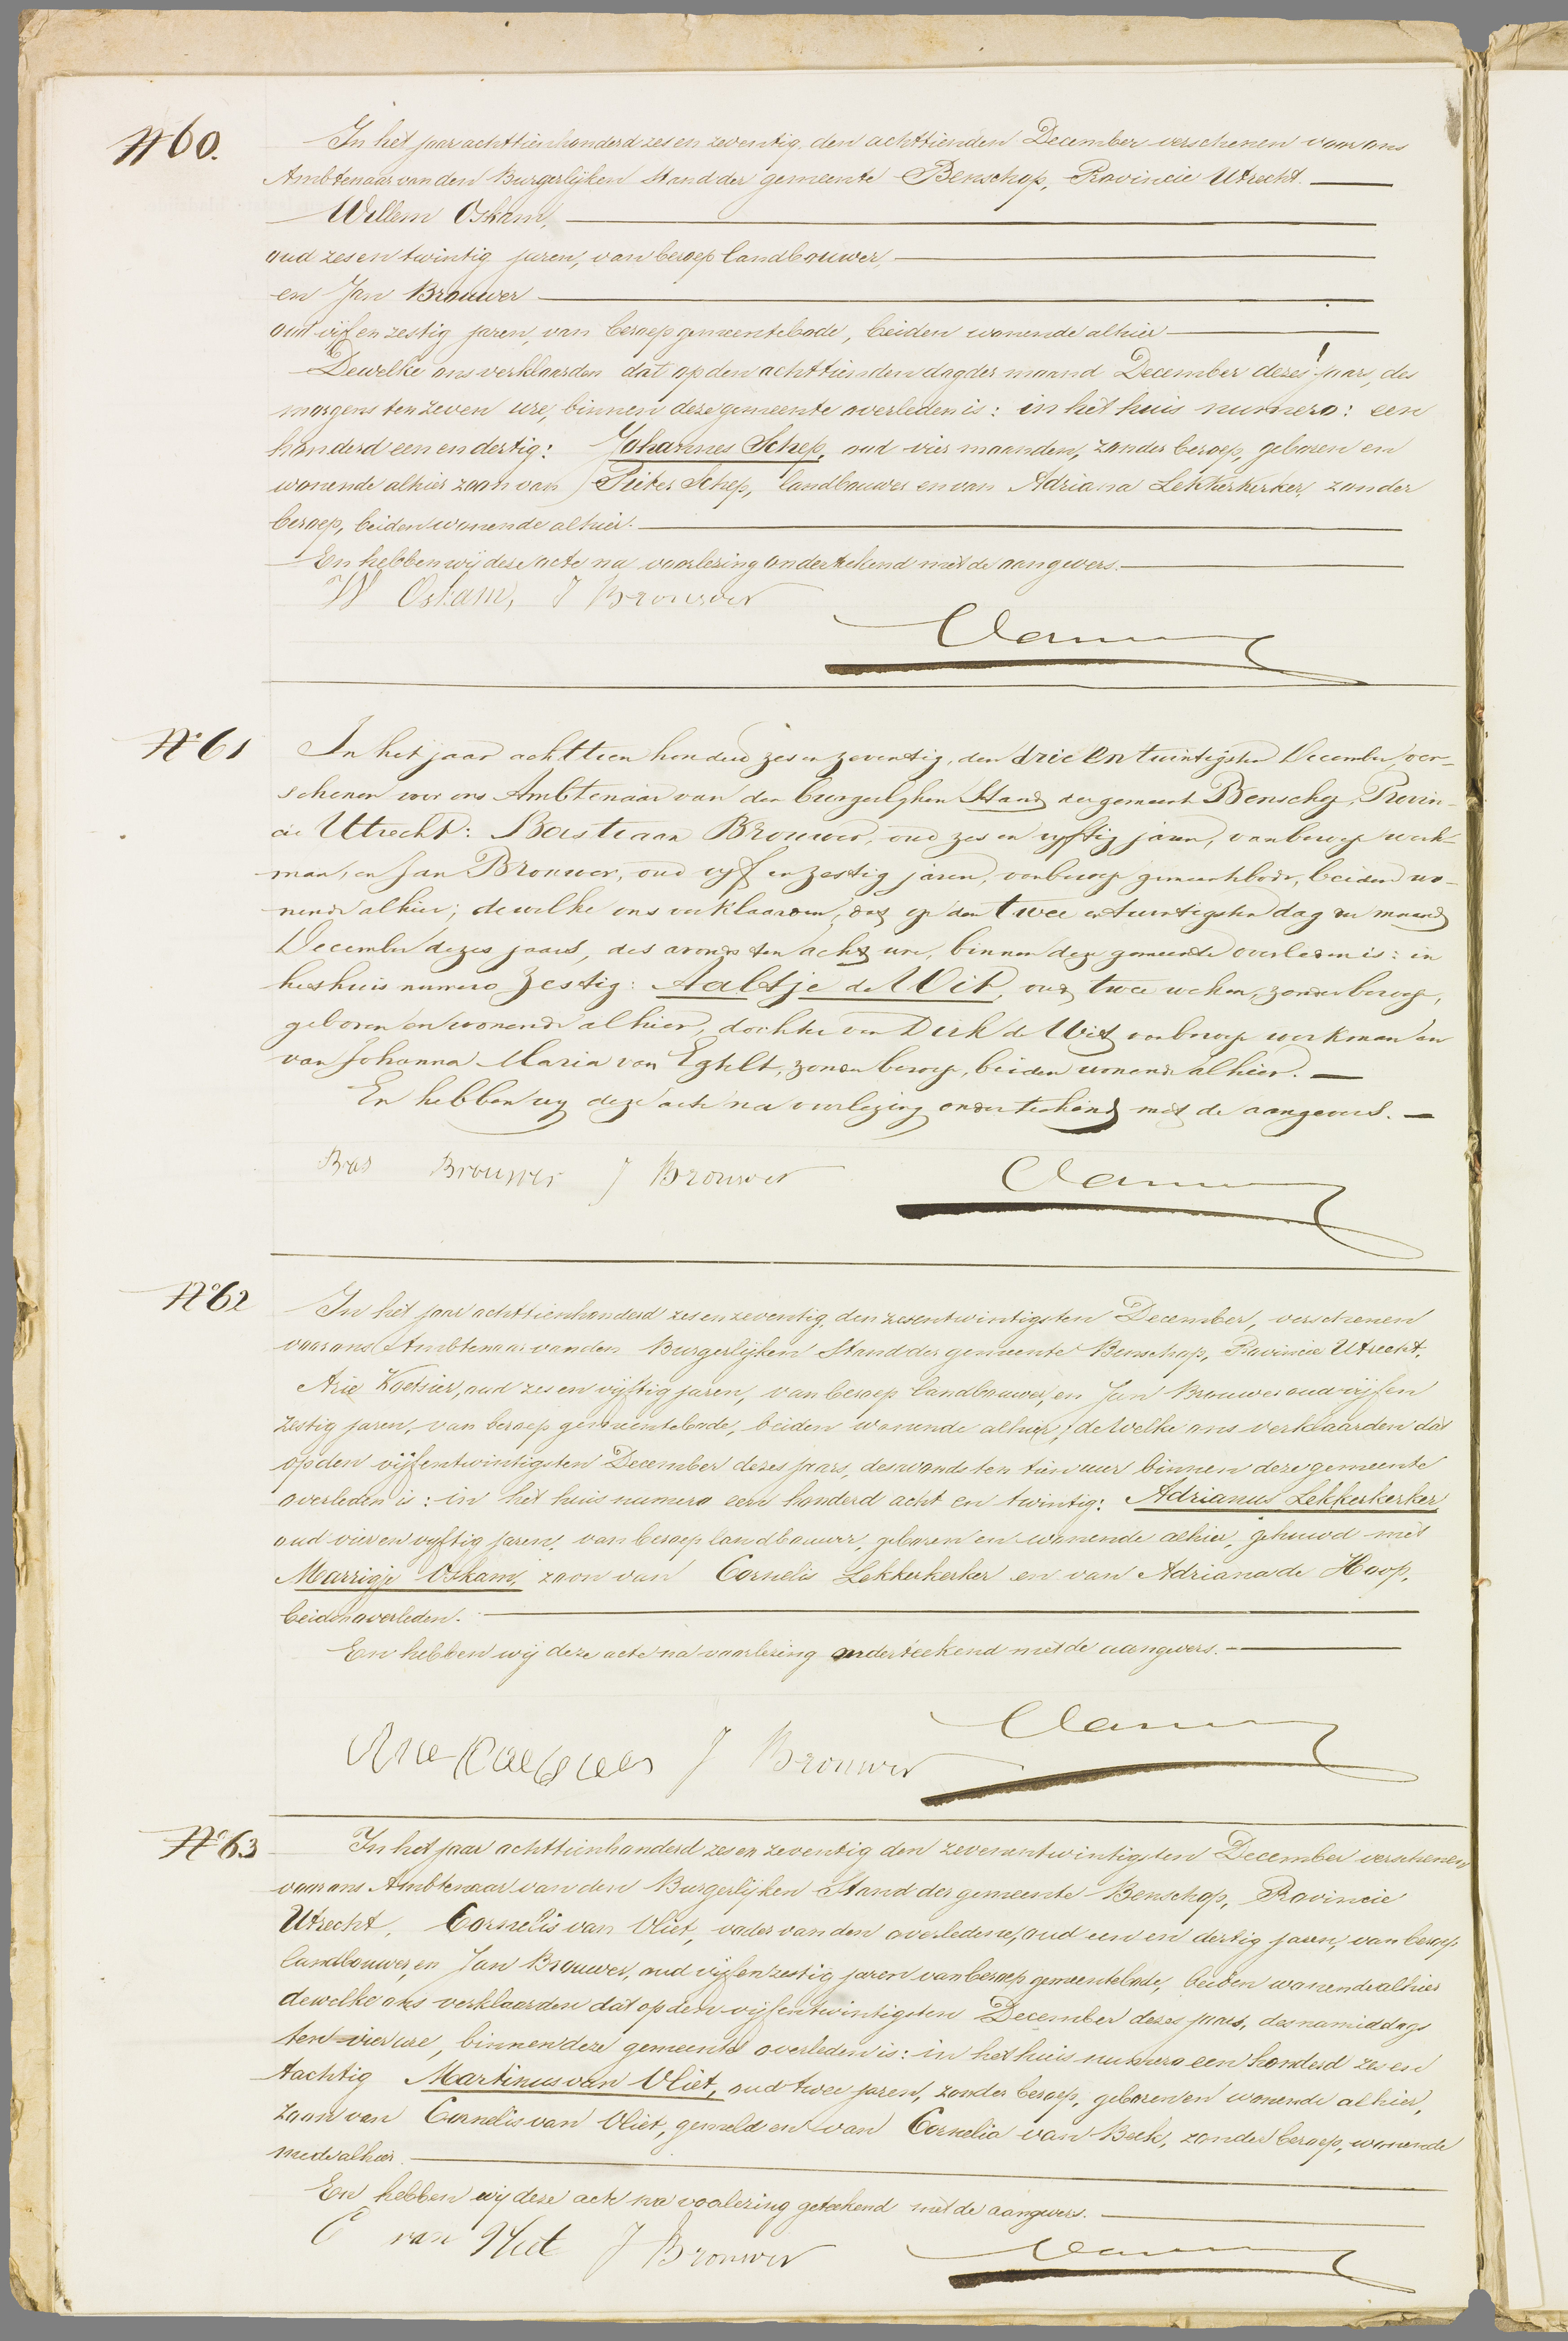 N 60.
In het jaar achttienhonderd zes en zeventig, den achttienden December verschenen voor ons
Ambtenaar van den Burgerlijken Stand der gemeente Benschop, Provincie Utrecht.
Willem Oskam,
oud zes en twintig jaren, van beroep landbouwer,
en Jan Brouwer
oud vijf en zestig jaren, van beroep gemeentebode, beiden wonende alhier
Dewelke ons verklaarden dat op den achttienden dag der maand December dezes jaars, des
morgens ten zeven ure, binnen deze gemeente overleden is: in het huis numero: een
honderd een en dertig: Johannes Schep, oud vier maanden, zonder beroep, geboren en
wonende alhier zoon van Pieter Schep, landbouwer en van Adriana Lekkerkerker, zonder
beroep, beiden wonende alhier.
En hebben wij deze acte na voorlezing onderteekend met de aangevers.
W Oskam, J Brouwer
No 61
In het jaar achttien honderd zes en zeventig, den drie en twintigsten December, ver-
schenen voor ons Ambtenaar van den burgerlyken Stand der gemeente Benschop, Provin-
cie Utrecht: Bastiaan Brouwer, oud zes en vyftig jaren, van beroep werk-
man, en Jan Brouwer, oud vyf en zestig jaren, van beroep gemeentebode, beiden wo-
nende alhier; dewelke ons verklaarden, dat op den twee en twintigsten dag der maand
December dezes jaars, des avonds ten acht ure, binnen deze gemeente overleden is: in
het huis numero zestig: Aaltje de Wit, oud twee weken, zonder beroep,
geboren en wonende alhier, dochter van Dirk de Wit van beroep werkman en
van Johanna Maria van Egtelt, zonder beroep, beiden wonende alhier.
En hebben wy deze acte na voorlezing onderteekend met de aangevers.
Bas Brouwer J Brouwer
No 62
In het jaar achttienhonderd zes en zeventig, den zesentwintigsten December, verschenen
voor ons Ambtenaar van den Burgerlijken Stand der gemeente Benschop, Provincie Utrecht,
Arie Koetsier, oud zes en vijftig jaren, van beroep landbouwer, en Jan Brouwer oud vijf en
zestig jaren, van beroep gemeentebode, beiden wonende alhier, dewelke ons verklaarden dat
op den vijfentwintigsten December dezes jaars, des avonds ten tien uur binnen deze gemeente
overleden is: in het huis numero een honderd acht en twintig: Adrianus Lekkerkerker
oud vier en vyftig jaren, van beroep landbouwer, geboren en wonende alhier, gehuwd met
Marrigje Oskam, zoon van Cornelis Lekkerkerker en van Adriana de Hoop,
beiden overleden.
En hebben wij deze acte na voorlezing onderteekend met de aangevers.
Arie Koetsier J Brouwer
No 63
In het jaar achttienhonderd zes en zeventig den zevenentwintigsten December verschenen
voor ons Ambtenaar van den Burgerlijken Stand der gemeente Benschop, Provincie
Utrecht, Cornelis van Vliet, vader van den overledene, oud een en dertig jaren, van beroep
landbouwer, en Jan Brouwer, oud vijf en zestig jaren van beroep gemeentebode, beiden wonende alhier
dewelke ons verklaarden dat op den vijfentwintigsten December dezes jaars, des namiddags
ten vier ure, binnen deze gemeente overleden is: in het huis numero een honderd zes en
tachtig Martinus van Vliet, oud twee jaren, zonder beroep, geboren en wonende alhier,
zoon van Cornelis van Vliet, gemeld en van Cornelia van Beek, zonder beroep, wonende
mede alhier.
En hebben wij deze acte na voorlezing geteekend met de aangevers.
C van Vliet J Brouwer